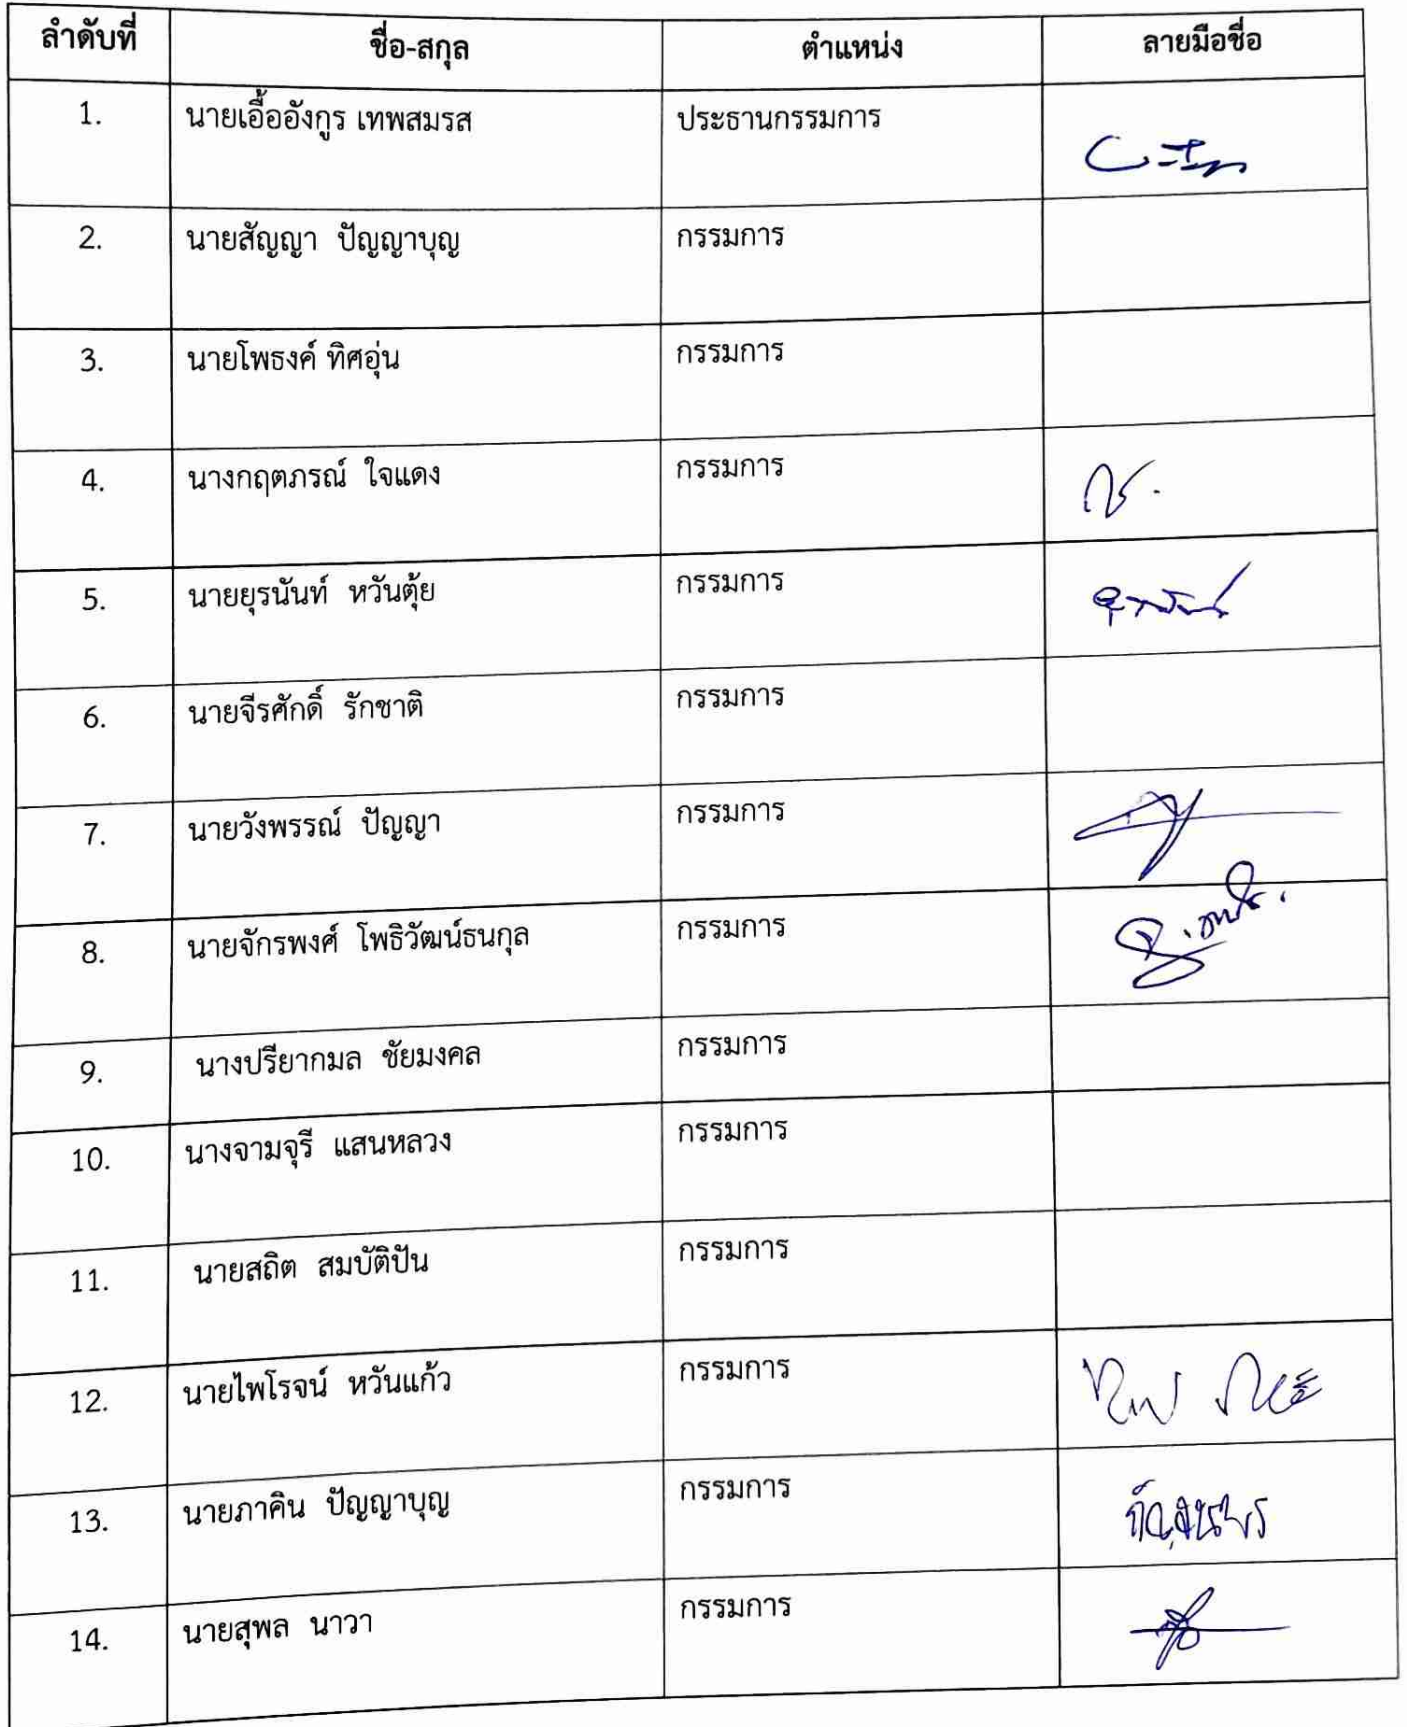 ลำดับที่ ชื่อ-สกุล ตำแหน่ง ลายมือชื่อ
1. นายเอื้ออังกูร เทพสมรส ประธานกรรมการ
2. นายสัญญา ปัญญาบุญ กรรมการ
3. นายโพธงค์ ทิศอุ่น กรรมการ
4. นางกฤตภรณ์ ใจแดง กรรมการ
5. นายยุรนันท์ หวันตุ้ย กรรมการ
6. นายจีรศักดิ์ รักชาติ กรรมการ
7. นายวังพรรณ์ ปัญญา กรรมการ
8. นายจักรพงศ์ โพธิวัฒน์ธนกุล กรรมการ
9. นางปรียากมล ชัยมงคล กรรมการ
10. นางจามจุรี แสนหลวง กรรมการ
11. นายสถิต สมบัติปัน กรรมการ
12. นายไพโรจน์ หวันแก้ว กรรมการ
13. นายภาคิน ปัญญาบุญ กรรมการ
14. นายสุพล นาวา กรรมการ